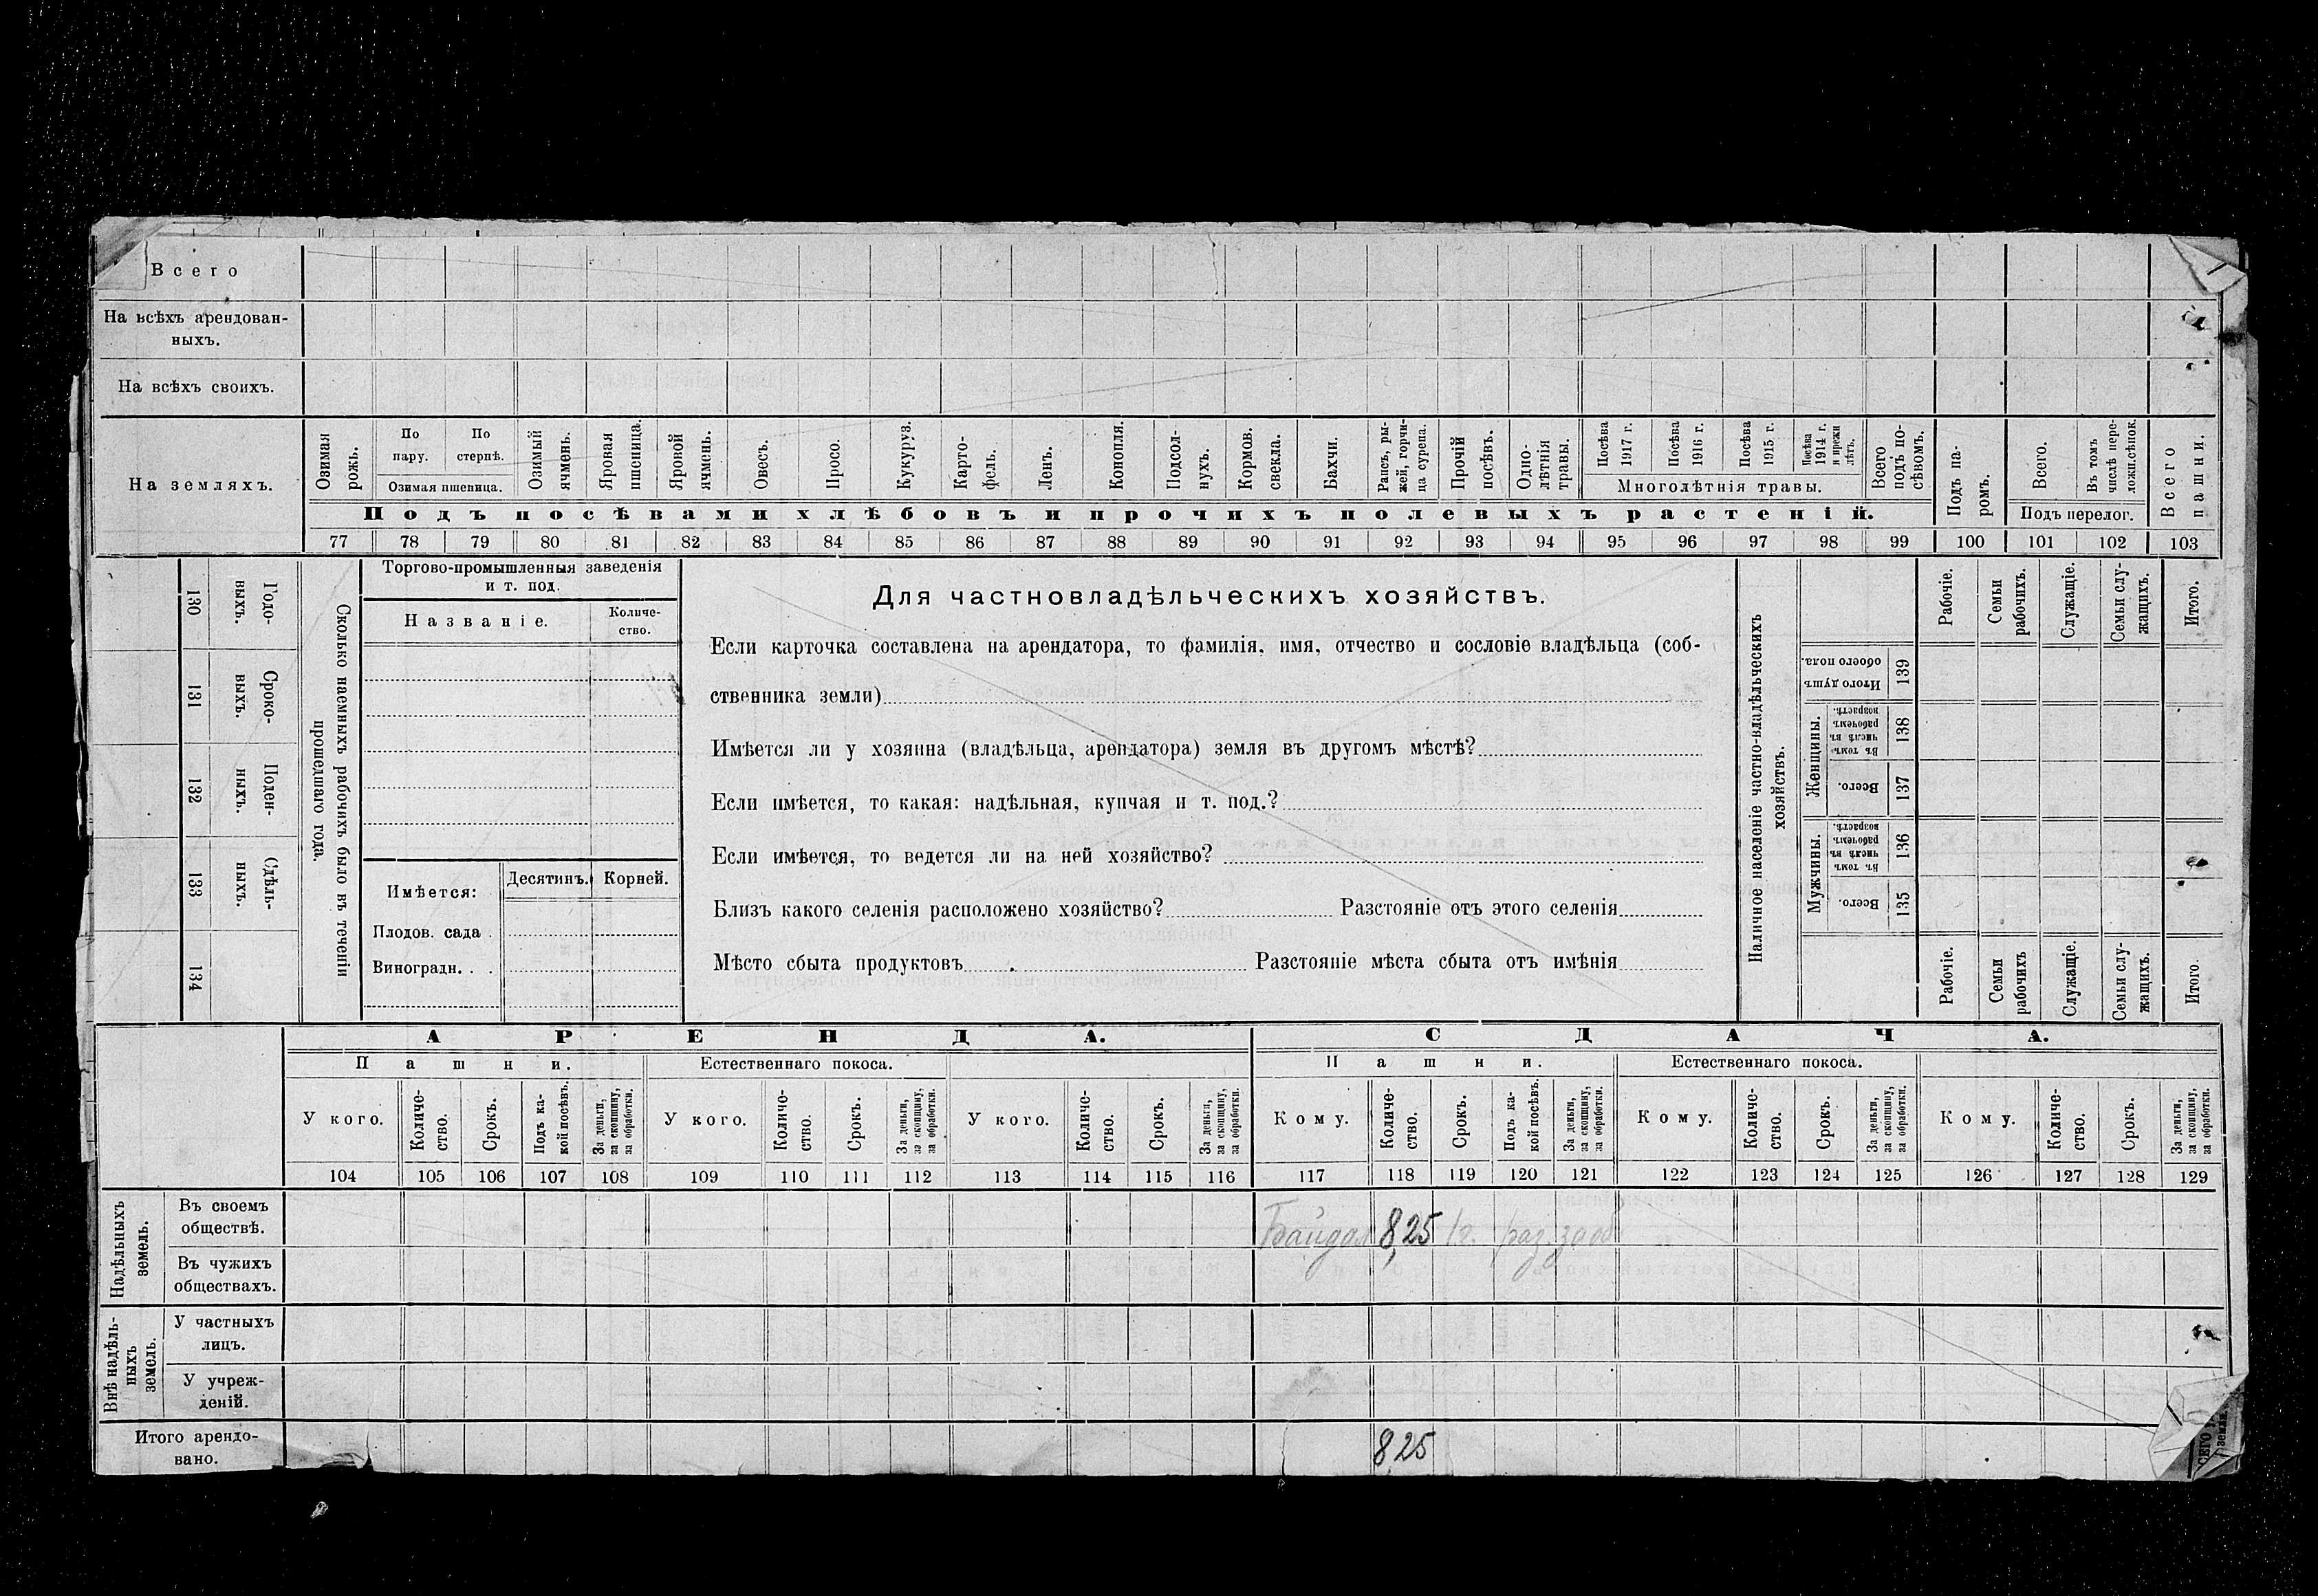 Всего
На всѣхъ арендован-
ныхъ.
На всѣхъ своихъ.
На земляхъ.
Озимая рожь.
По пару.
По стернѣ.
Озимая пшеница.
Озимый ячмень.
Яровая пшеница.
Яровой ячмень.
Овесъ.
Просо.
Кукуруз.
Карто-
фель.
Ленъ.
Конопля.
Подсол-
нухъ.
Кормов.
свекла.
Бахчи.
Рапсъ, ры-
жей, горчи-
ца сурепа.
Прочій
посѣвъ.
Одно-
лѣтнія
травы.
Посѣва
1917 г.
Посѣва
1916 г.
Посѣва
1915 г.
Посѣва
1914 г.
и прежн
лѣтъ.
Многолѣтнія травы.
Всего
подъ по-
сѣвомъ.
Подъ па-
ромъ.
Всего.
Въ томъ
числѣ пере-
ложн.сѣнок.
Подъ перелог.
Всего
пашни.
Подъ посѣвами хлѣбовъ и прочихъ полевыхъ растеній.
77 78 79 80 81 82 83 84 85 86 87 88 89 90 91 92 93 94 95 96 97 98 99 100 101 102 103
130
Годо-
выхъ.
131
Сроко-
выхъ.
132
Поден-
ныхъ.
133
Сдѣль-
ныхъ.
134
Сколько наемныхъ рабочихъ было въ теченіи
прошедшаго года.
Торгово-промышленныя заведенія
и т. под.
Названіе.
Количе-
ство.
Имѣется:
Десятинъ.
Корней.
Плодов. сада .
Виноградн. . .
Для частновладѣльческихъ хозяйствъ.
Если карточка составлена на арендатора, то фамилія, имя, отчество и сословіе владѣльца (соб-
ственника земли)
Имѣется ли у хозяина (владѣльца, арендатора) земля въ другомъ мѣстѣ?
Если имѣется, то какая: надѣльная, купчая и т. под.?
Если имѣется, то ведется ли на ней хозяйство?
Близъ какого селенія расположено хозяйство? Разстояніе отъ этого селенія
Мѣсто сбыта продуктовъ Разстояніе мѣста сбыта отъ имѣнія
Наличное населеніе частно-владѣльческихъ
хозяйствъ.
Рабочіе.
Семьи
рабочихъ.
Служащіе.
Семьи слу-
жащихъ.
Итого.
Итого душъ
обоего пола.
139
Женщины.
Въ томъ
числѣ въ
рабочемъ
возрастѣ.
138
Всего.
137
Мужчины.
Въ томъ
числѣ въ
рабочемъ
возрастѣ.
136
Всего.
135
Рабочіе.
Семьи
рабочихъ
Служащіе.
Семьи слу-
жащихъ.
Итого.
АРЕНДА. СДАЧА.
Пашни. Естественнаго покоса. Пашни. Естественнаго покоса.
У кого.
Количе-
ство.
Срокъ.
Подъ ка-
кой посѣвъ.
За деньги,
за скопщину,
за обработки.
У кого.
Количе-
ство.
Срокъ.
За деньги,
за скопщину,
за обработки.
У кого.
Количе-
ство.
Срокъ.
За деньги,
за скопщину,
за обработки.
Кому.
Количе-
ство.
Срокъ.
Подъ ка-
кой посѣвъ.
За деньги,
за скопщину,
за обработки
Кому.
Количе-
ство.
Срокъ.
За деньги,
за скопщину,
за обработки.
Кому.
Количе-
ство.
Срокъ.
За деньги,
за скопщину,
за обработки.
104 105 106 107 108 109 110 111 112 113 114 115 116 117 118 119 120 121 122 123 124 125 126 127 128 129
Надѣльныхъ
земель.
Въ своемъ
обществѣ.
Байдал 8,25 1г. раз.
Въ чужихъ
обществахъ.
Внѣ надѣль-
ныхъ
земель.
У частныхъ
лицъ.
У учреж-
деній.
Итого арендо-
вано.
8,25